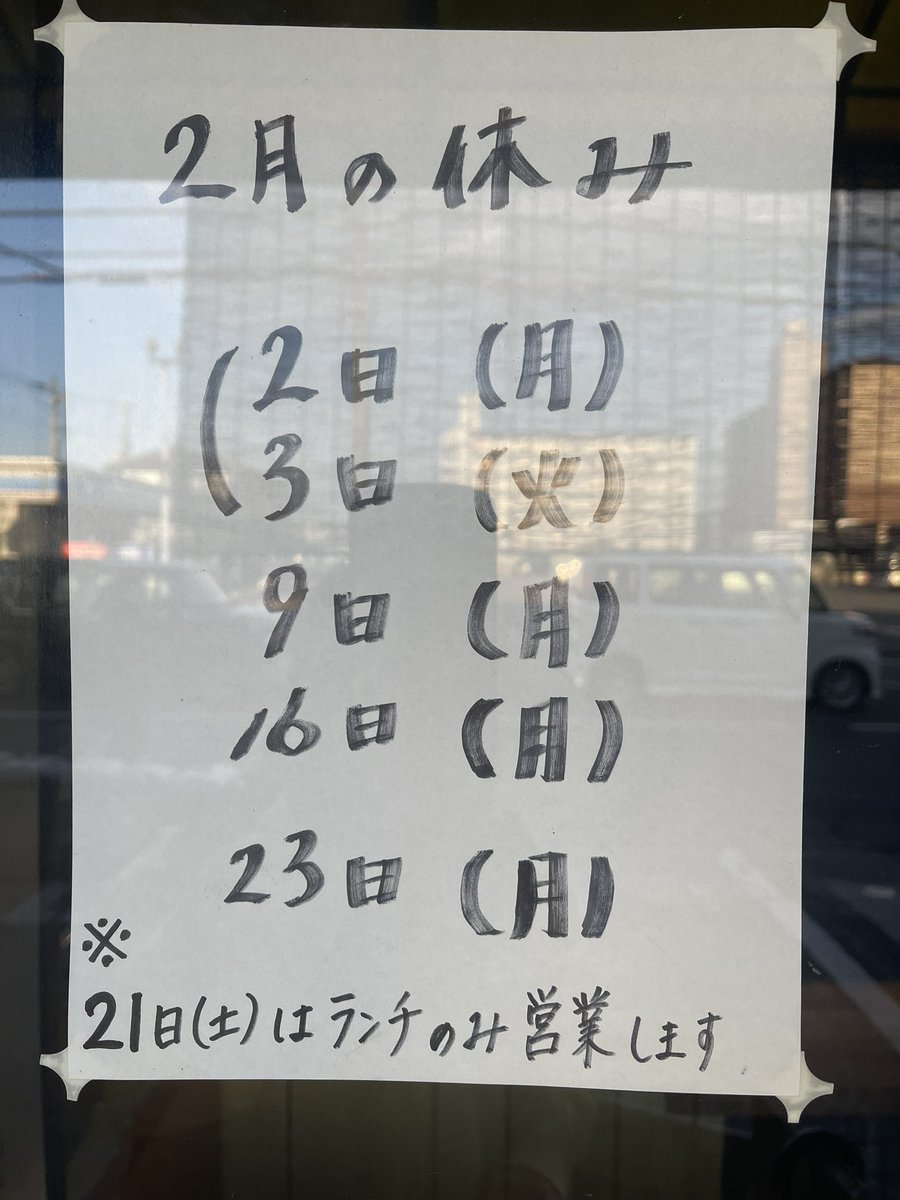 2月の休み
2日 (月)
3日 (火)
9日 (月)
16日 (月)
23日 (月)
※
21日(土)はランチのみ営業します